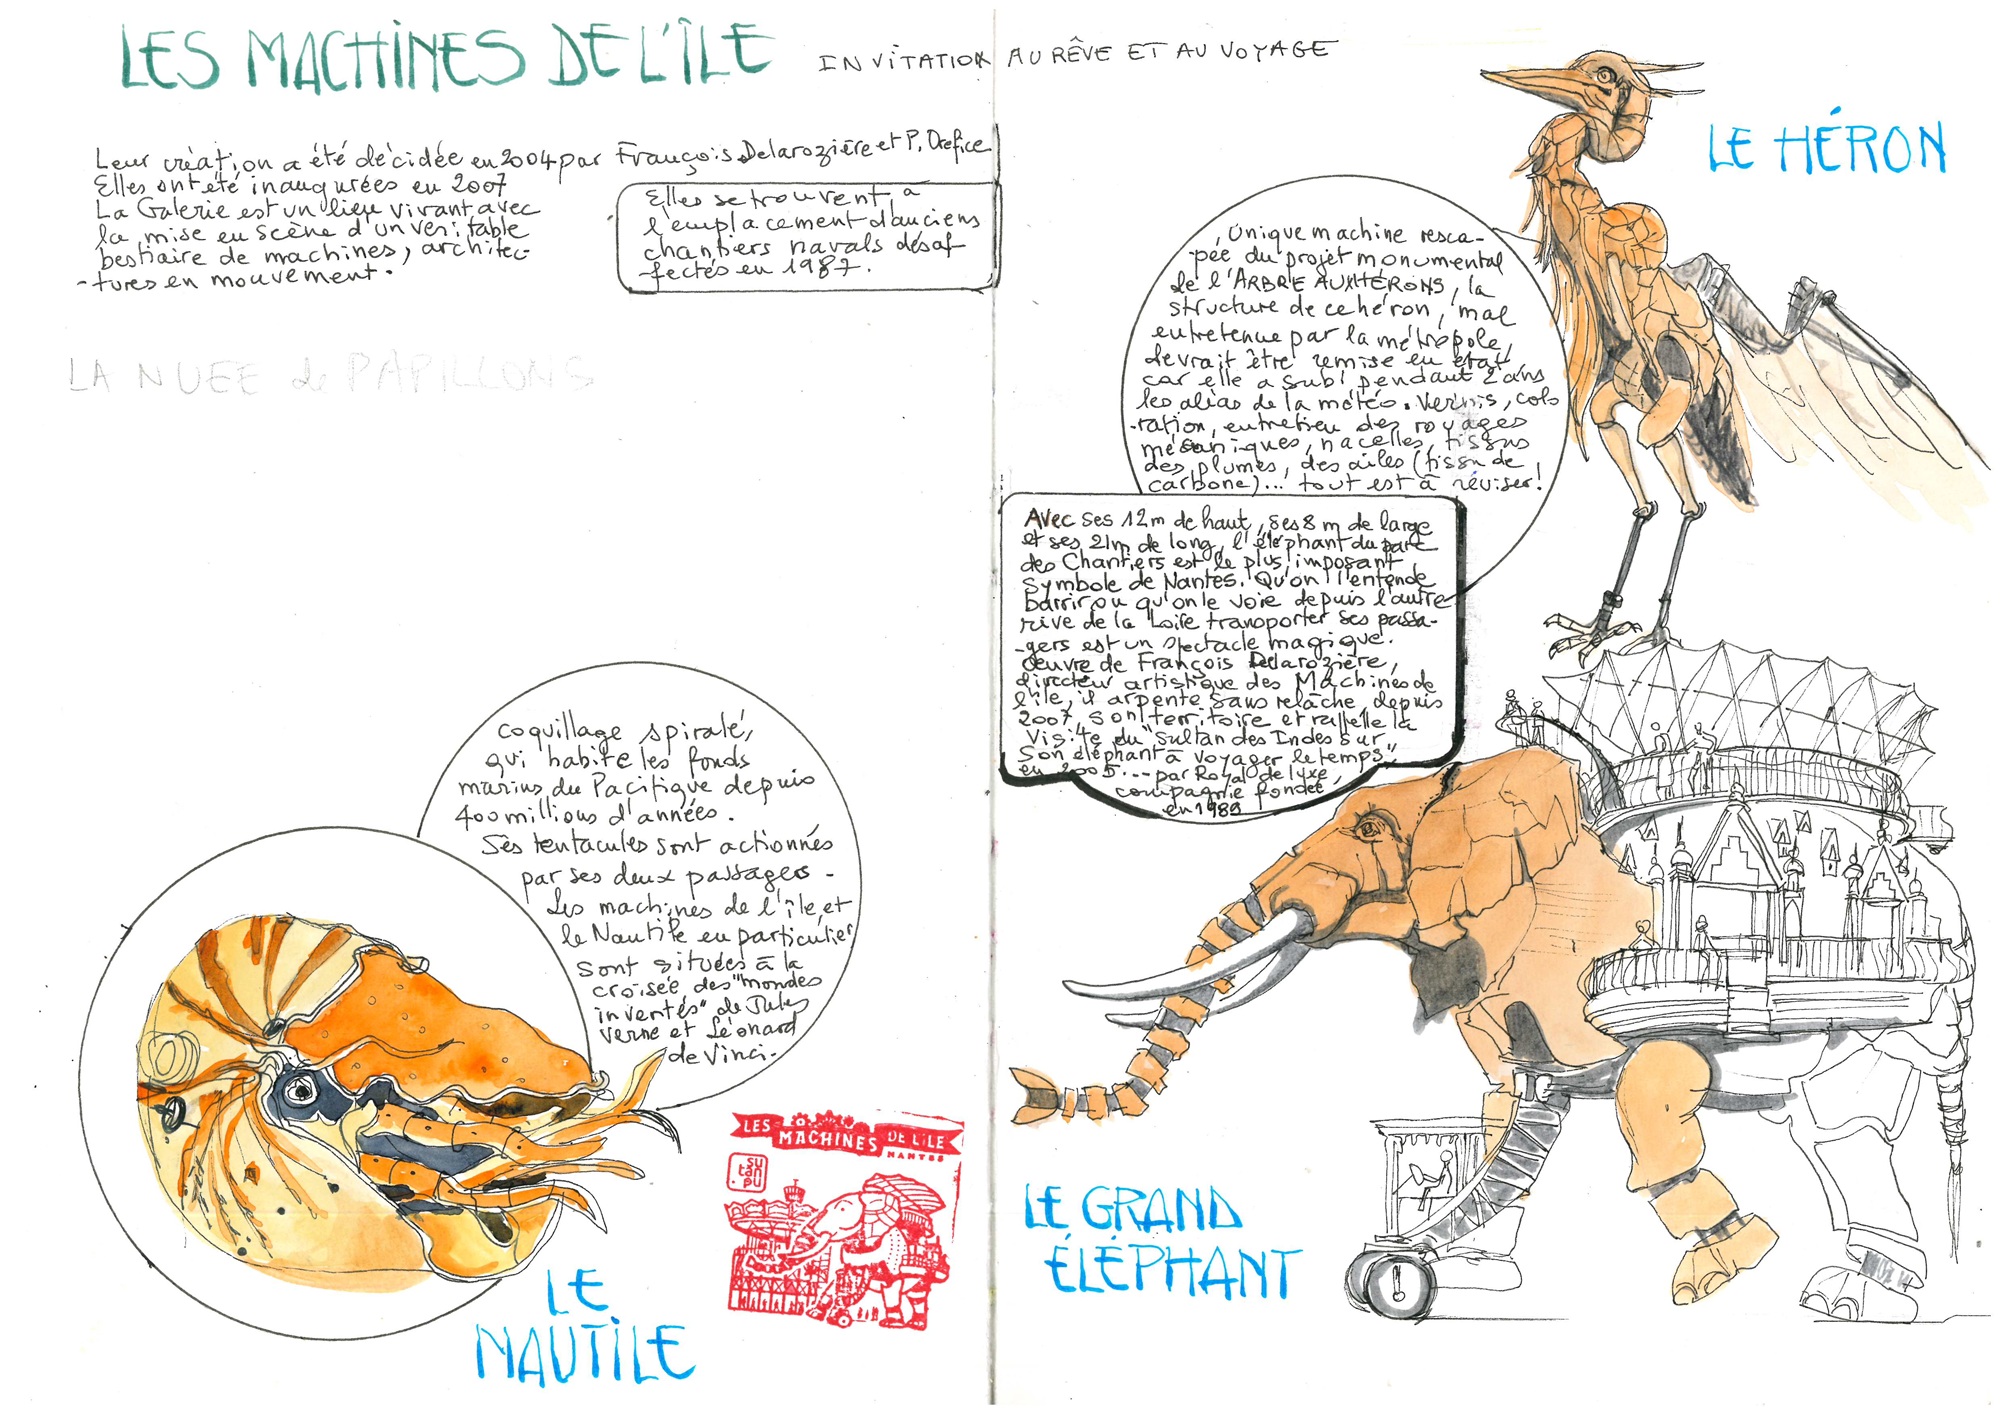 LES MACHINES DE L'ÎLE
INVITATION AU RÊVE ET AU VOYAGE
Leur création a été décidée en 2004 par François Delarozière et P. Orefice
Elles ont été inaugurées en 2007
La Galerie est un lieu vivant avec
la mise en scène d'un véritable
bestiaire de machines, architec-
-tures en mouvement.
Elles se trouvent à
l'emplacement d'anciens
chantiers navals désaf-
-fectés en 1987.
LA NUEE de PAPILLONS
LE HÉRON
Unique machine resca-
pée du projet monumental
de l'ARBRE AUX HÉRONS, la
structure de ce héron, mal
entretenue par la métropole,
devrait être remise en état
car elle a subi pendant 2 ans
les aléas de la météo. Vernis, colo
-ration, entretien des rouages
mécaniques, nacelles, tissus
des plumes, des ailes (tissu de
carbone)... tout est à réviser!
Avec ses 12m de haut, ses 8 m de large
et ses 21m de long, l'éléphant du parc
des Chantiers est le plus imposant
symbole de Nantes. Qu'on l'entende
barrir ou qu'on le voie depuis l'autre
rive de la Loire transporter ses passa-
-gers est un spectacle magique.
Œuvre de François Delarozière,
directeur artistique des Machines de
l'île, il arpente sans relâche, depuis
2007, son territoire et rappelle la
Visite du "Sultan des Indes sur
Son éléphant à voyager le temps"
en 2005... par Royal de luxe,
compagnie fondée
en 1989
coquillage spiralé,
qui habite les fonds
marins du Pacifique depuis
400 millions d'années.
Ses tentacules sont actionnés
par ses deux passagers -
Les machines de l'île, et
le Nautile en particulier
sont situées à la
croisée des "mondes
inventés" de Jules
Verne et Léonard
de Vinci.
LE
NAUTILE
LES MACHINES DE L'ÎLE
NANTES
SU
tan
PU
LE GRAND
ÉLÉPHANT